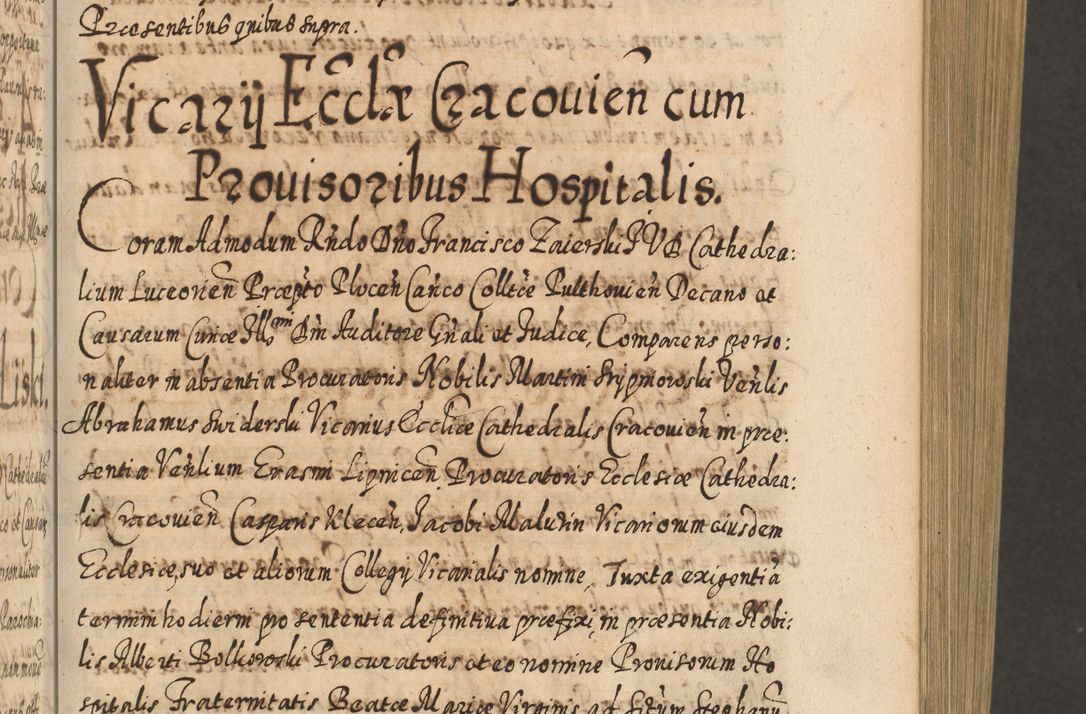 Præsentibus quibus supra.
Vicarij Ecclæ Cracovien̄ cum
Prouisoribus Hospitalis.
Coram Admodum Rn̄do Dn̄o Francisco Zaierski J V D Cathedra:
lium Luceorien̄ Præpto Plocen̄ Can̄co Colltæ Pulthouien̄ Decano et
Causarum Curiæ Illmi Dn̄i Auditore Gn̄ali et Judice, Comparens perso:
naliter in absentia Procuratoris Nobilis Martini Skrypniowski Ven̄lis
Abrahamus Swiderski Vicarius Ecclæ Cathedralis Cracouien̄ in præ:
sentia Ven̄lium Erasmi Lipnicen̄ Procuratoris Ecclesiæ Cathedra:
lis Cracouien̄ Casparis Klecen̄, Jacobi Maludin Vicariorum eiusdem
Ecclesiæ, suo et aliorum Collegij Vicarialis nomine, Juxta exigentiā
termini hodierni pro sententia definitiua præfixi, in præsentia Nobi:
lis Alberti Bolkowski Procuratoris et eo nomine Prouisorum Ho
spitalis Fraternitatis Beatæ Mariæ Virginis ad Sctum Stephanū